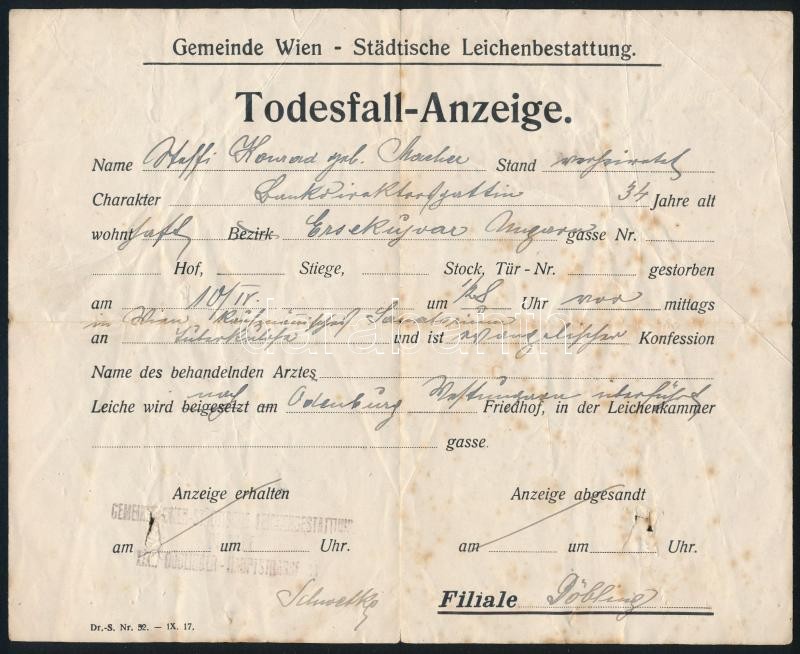 Gemeinde Wien - Städtische Leichenbestattung.
Todesfall-Anzeige.
Name Steffi Konrad geb. Macher Stand verheiratet
Charakter Bankdirektorsgattin 34 Jahre alt
wohnhaft Bezirk Ersekujvar Ungarn gasse Nr.
Hof, Stiege, Stock, Tür-Nr. gestorben
am 10/IV. um ½8 Uhr vor mittags
in Wien Kaufmännisches Sanatorium
an und ist evangelischer Konfession
Name des behandelnden Arztes
nach
Leiche wird beigesetzt am Ödenburg Westungarn überführt Friedhof, in der Leichenkammer
gasse.
Anzeige erhalten Anzeige abgesandt
GEMEINDE WIEN STÄDTISCHE LEICHENBESTATTUNG
am um Uhr. am um Uhr.
DÖBLINGER-HAUPTSTRASSE
Filiale Döbling
Dr.-S. Nr. 52. — IX. 17.